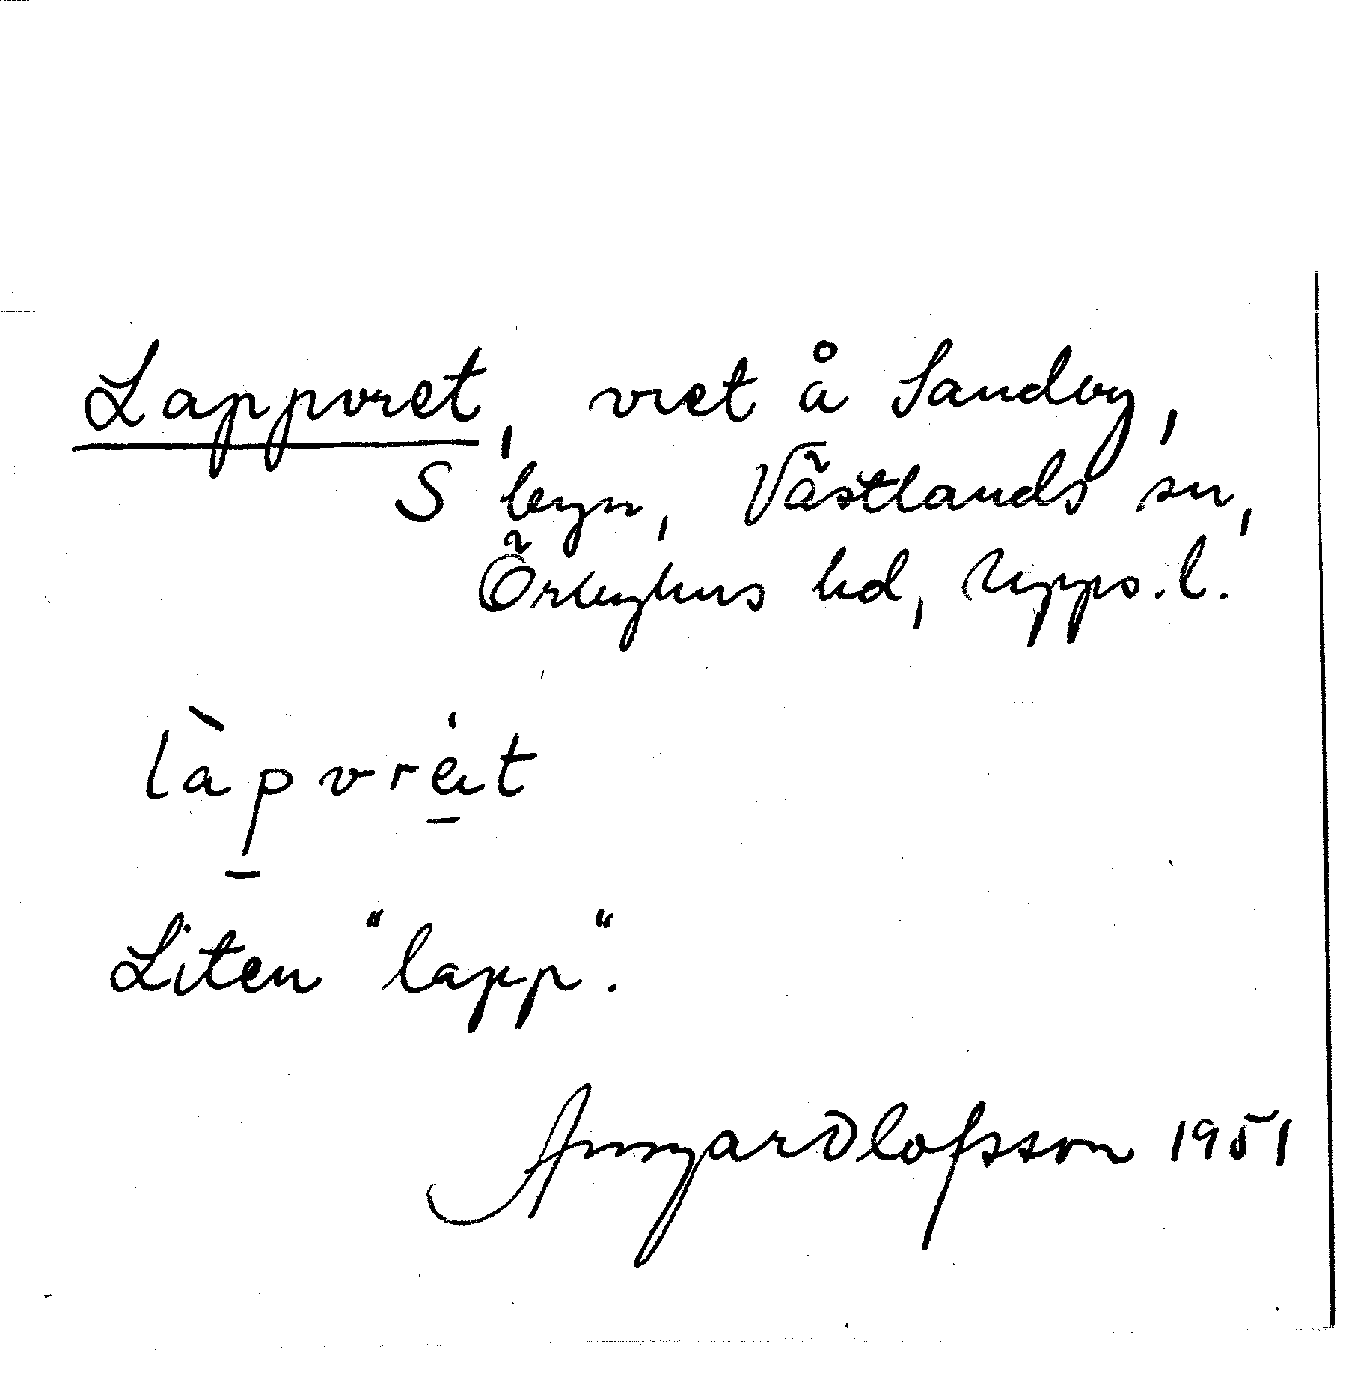 Lappvret, vret å Sandby,
S byn, Västlands sn,
Örbyhus hd, Upps. l.
làpvrèt
Liten "lapp".
Olofsson 1951